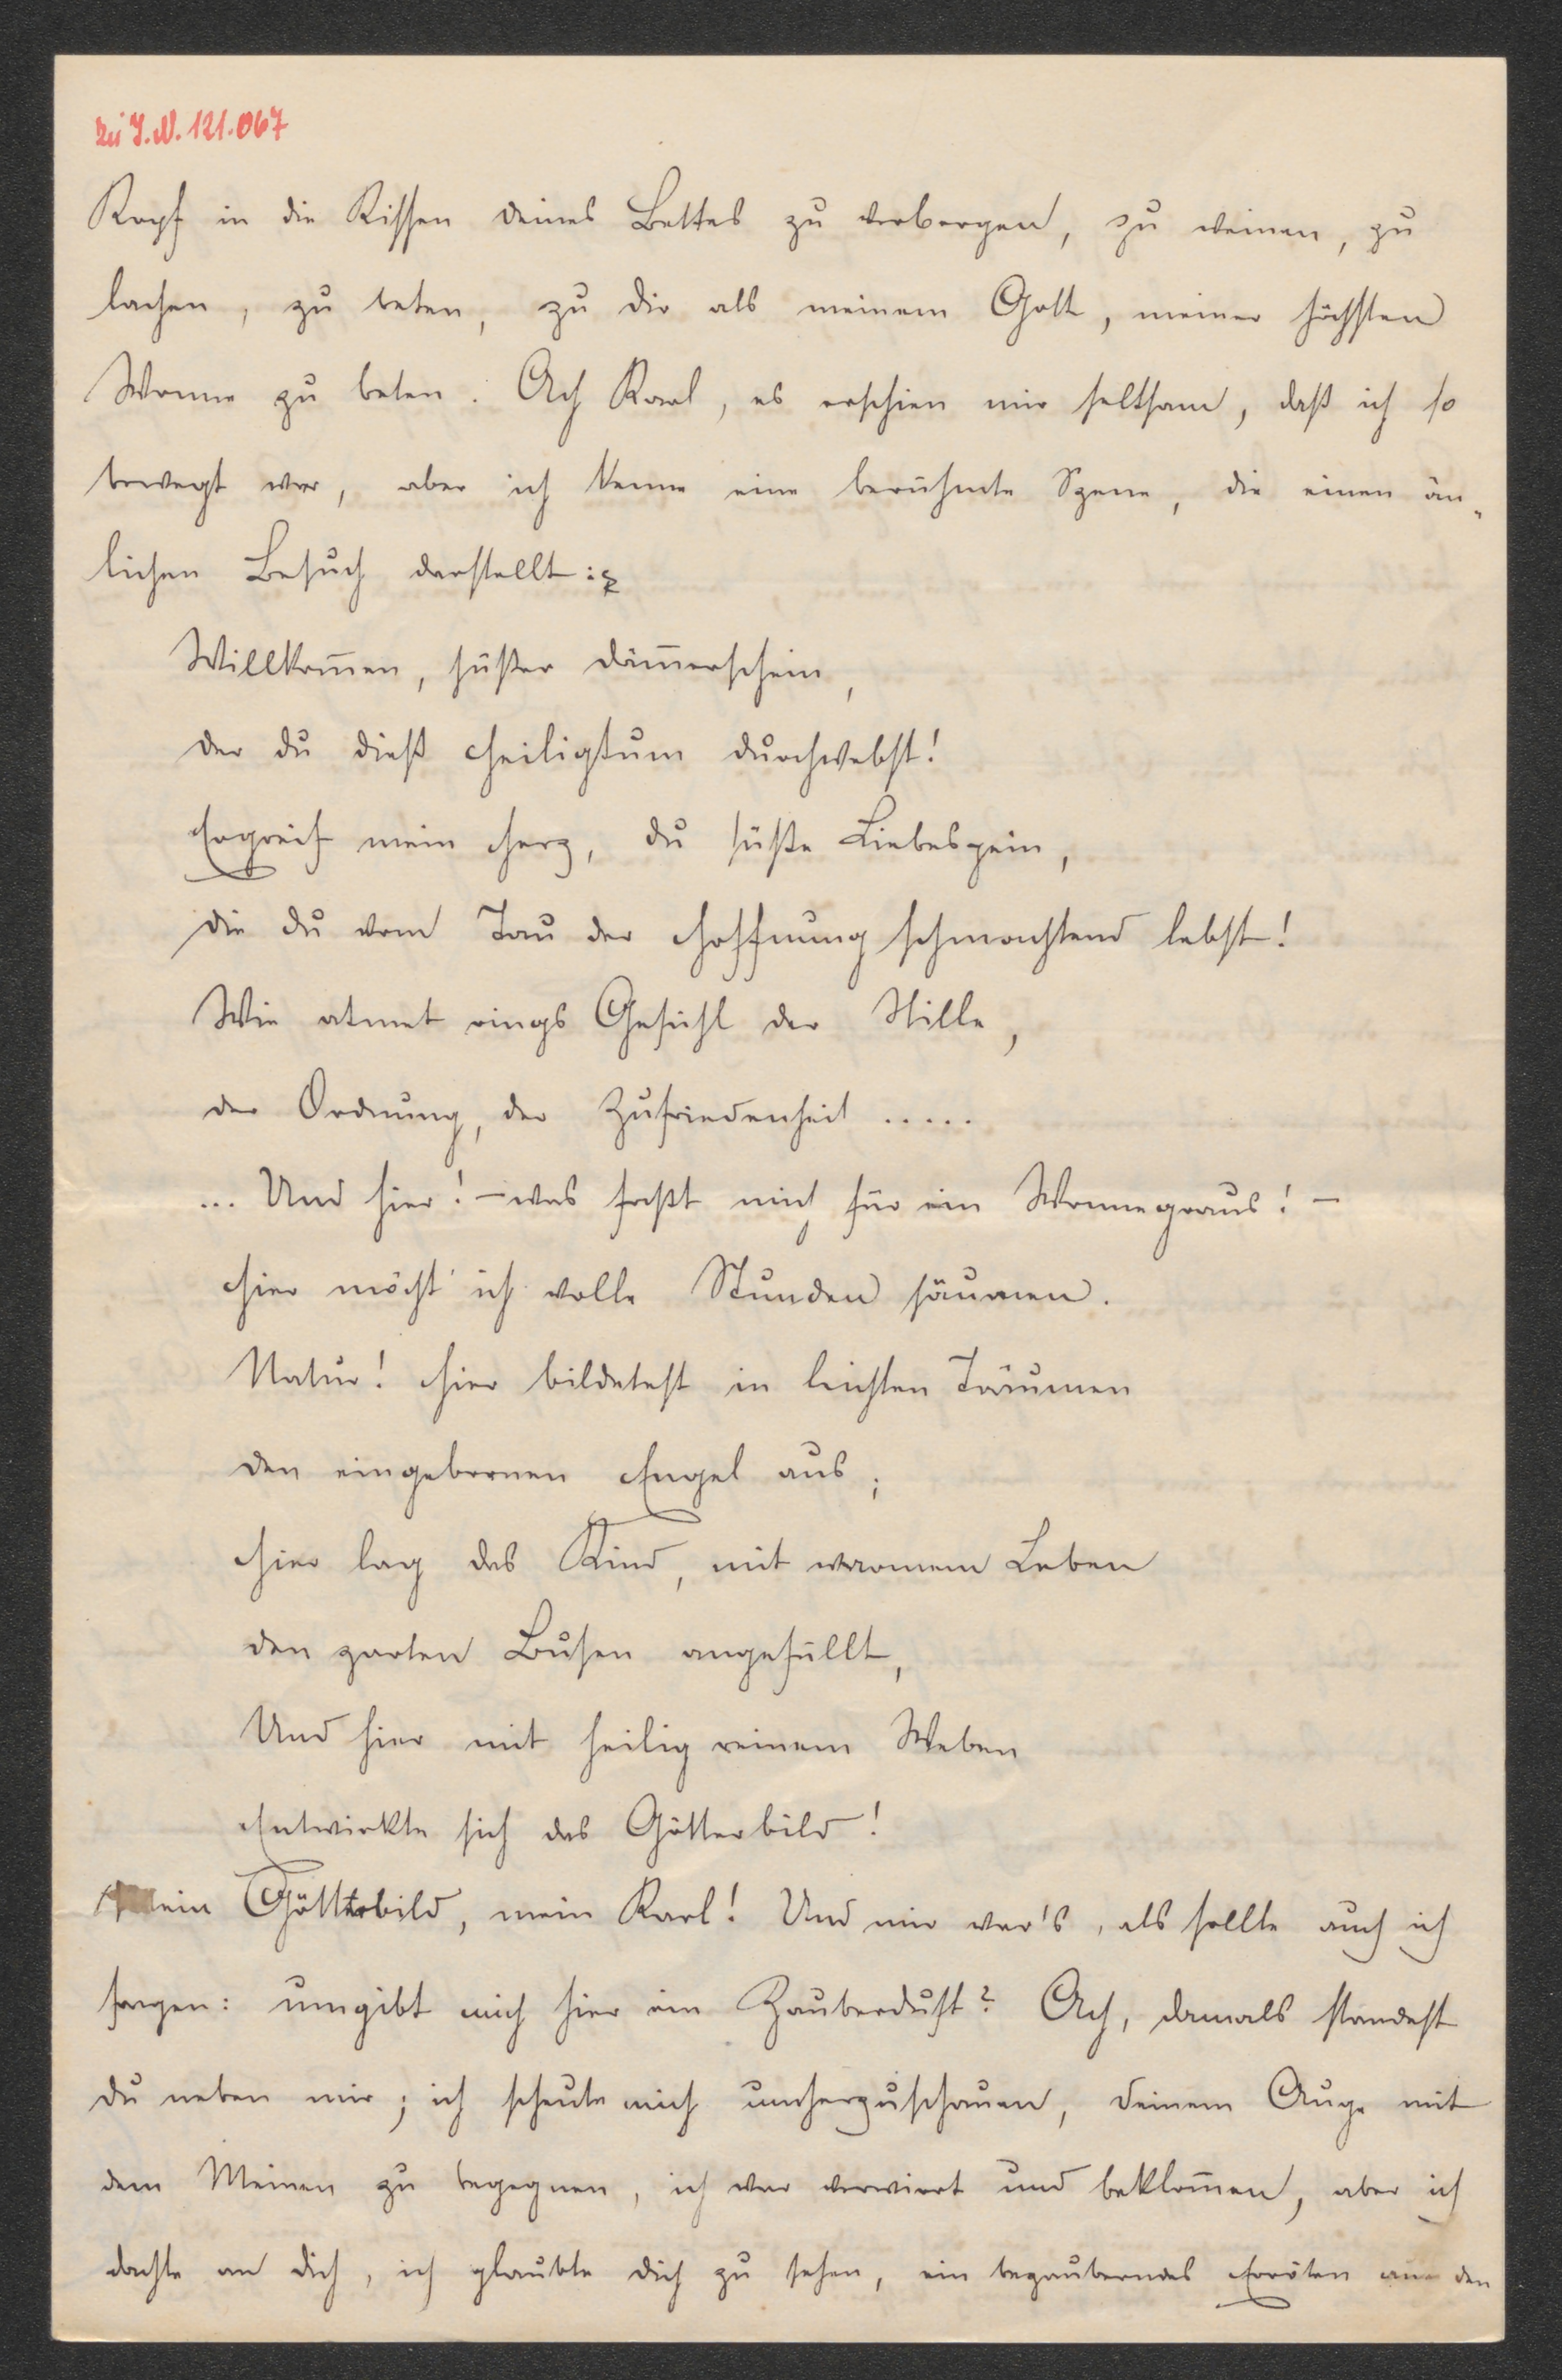 Zu I.N. 121.067
Kopf in die Kissen deines Bettes zu verbergen, zu weinen, zu
lachen, zu beten, zu dir als meinem Gott, meiner höchsten
Wonne zu beten. Ach Karl, es erschien mir seltsam, daß ich so
bewegt war, aber ich kenne eine berühmte Szene, die einen än-
lichen Besuch darstellt:
Willkom̄en, süßer Däm̄erschein,
der du dieß Heiligtum durchwebst!
Ergreif mein Herz, du süße Liebespein,
die du vom Tau der Hoffnung schmachtend lebst!
Wie atmet rings Gefühl der Stille,
der Ordnung, der Zufriedenheit .....
... Und hier! – was faßt mich für ein Wonnegraus! –
Hier möcht' ich volle Stunden säumen.
Natur! Hier bildetest in leichten Träumen
den eingebornen Engel aus;
Hier lag das Kind, mit warmem Leben
den zarten Busen angefüllt,
Und hier mit heilig reinem Weben
Entwirkte sich das Götterbild!
Mein Götterbild, mein Karl! Und mir war's, als sollte auch ich
sagen: umgibt mich hier ein Zauberduft? Ach, damals standest
du neben mir; ich scheute mich umherzuschauen, deinem Auge mit
dem Meinen zu begegnen, ich war verwirrt und beklom̄en, aber ich
dachte an dich, ich glaubte dich zu sehen, ein bezauberndes Erröten auf den